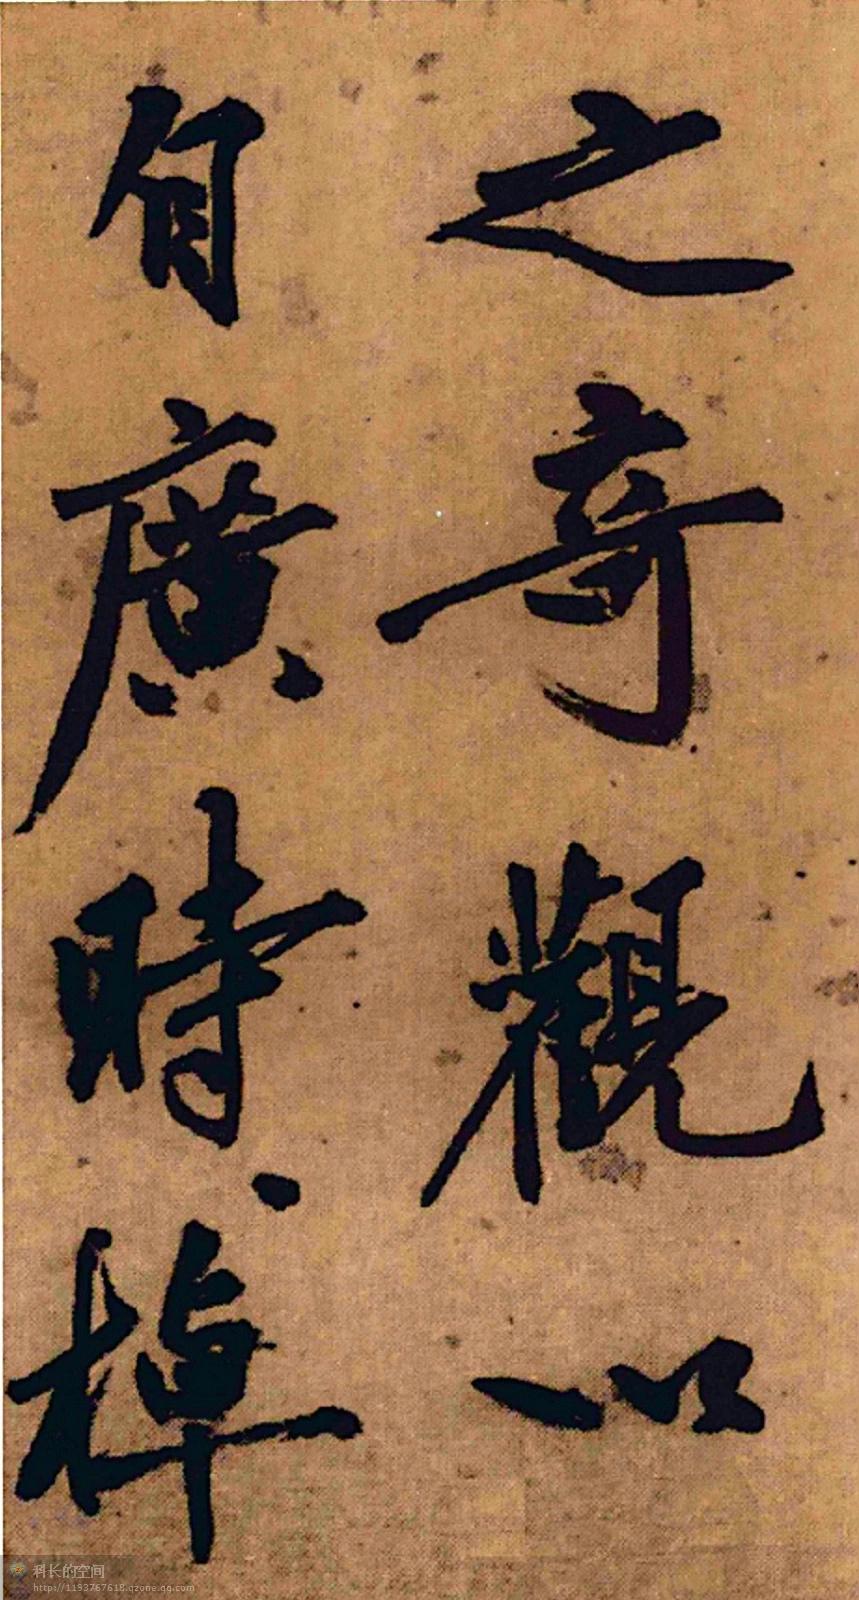 之奇觀以
自廣時、棹
科长的空间
http://1193767618.qzone.qq.com